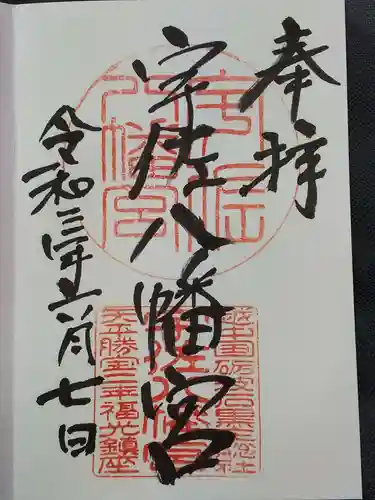 奉拝
宇佐八幡宮
令和三年五月七日
宇佐八幡宮
宇佐八幡宮
天平勝宝二年福光鎮座